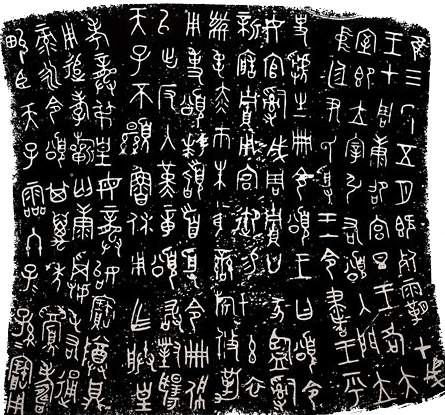 隹三年五月既死霸甲戌
王才周康卲宮旦王各大
室即立宰引右頌入門立
中廷尹氏受王令書王乎
史虢生冊令頌王曰頌令
女官𤔲成周貯廿家監𤔲
新造貯用宮御易女玄衣
黹屯赤巿朱黃䜌旂攸勒
用事頌拜𩒨首受令冊佩
以出反入堇章頌敢對揚
天子不顯魯休用乍朕皇
考龏弔皇母龏始寶尊鼎
用追孝𧻚匄康𩁹屯右通
彔永令頌其萬年眉壽
㽙臣天子霝冬子孫寶用